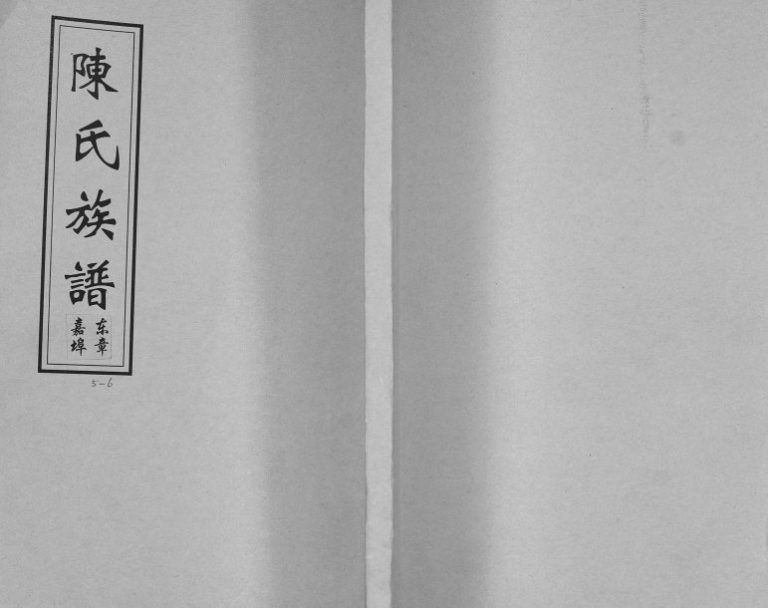 陳氏族譜
东章
嘉埠
5-6